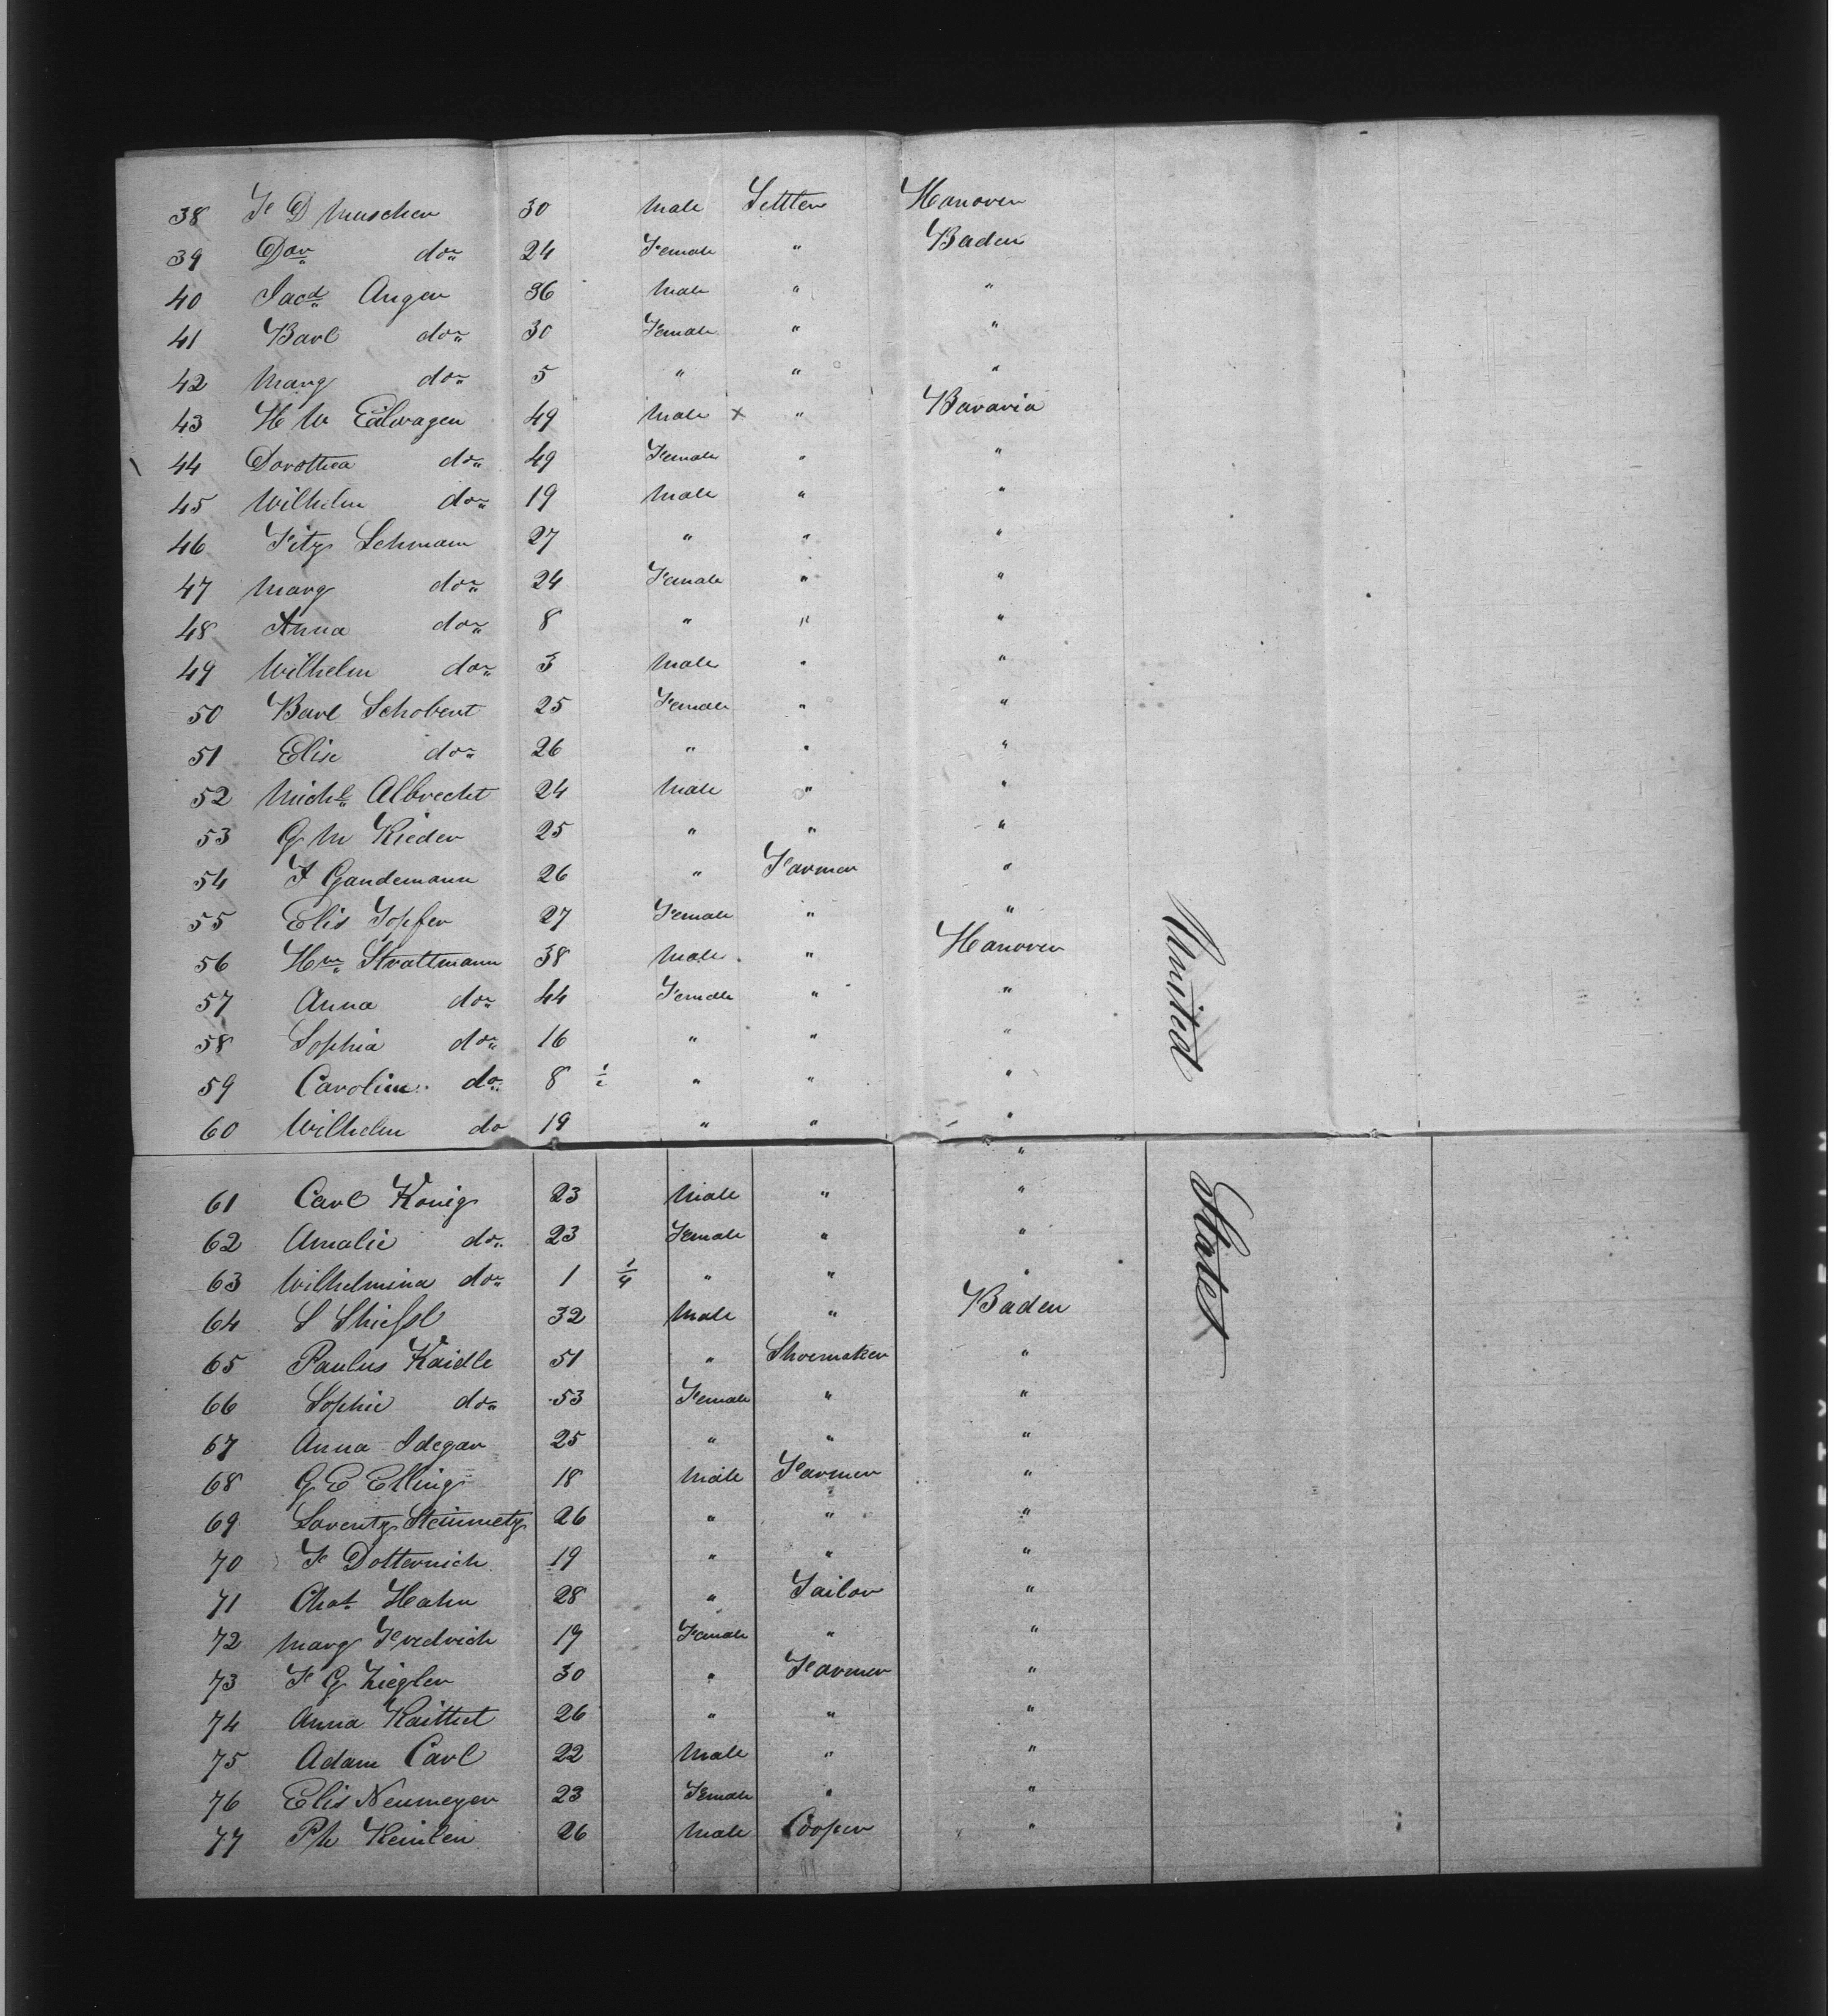 38 F D Muscher 30 Male Settler Hanover
39 Dor do 24 Female " Baden
40 Jacd Anger 36 Male " "
41 Barl do 30 Female " "
42 Marg do 5 " " "
43 H W Eilwagen 49 Male x " Bavaria
44 Dorothea do 49 Female " "
45 Wilhelm do 19 Male " "
46 Fitz Lehmann 27 " " "
47 Marg do 24 Female " "
48 Anna do 8 " " "
49 Wilhelm do 3 Male " "
50 Barl Schobert 25 Female " "
51 Elise do 26 " " "
52 Michl Albrecht 24 Male " "
53 G M Rieder 25 " " "
54 F Gandemann 26 " Farmer "
55 Elis Topfer 27 Female " "
56 Hm Strattmann 38 Male " Hanover
57 Anna do 44 Female " "
58 Sophia do 16 " " "
59 Caroline do 8 1/2 " " "
60 Wilhelm do 19 " " "
"
61 Carl Konig 23 Male " "
62 Amalie do 23 Female " "
63 Wilhelmina do 1 1/4 " " "
64 S Shiessl 32 Male " Baden
65 Paulus Kaidle 51 " Shoemaker "
66 Sophie do 53 Female " "
67 Anna Idegar 25 " " "
68 G E Elling 18 Male Farmer "
69 Lorentz Steinmetz 26 " " "
70 F Dotternich 19 " " "
71 Chat Hahn 28 " Tailor "
72 Marg Fredrich 17 Female " "
73 F G Ziegler 30 " Farmer "
74 Anna Kaittet 26 " " "
75 Adam Carl 22 Male " "
76 Elis Neumeyer 23 Female " "
77 Ph Keinlen 26 Male Cooper "
United States